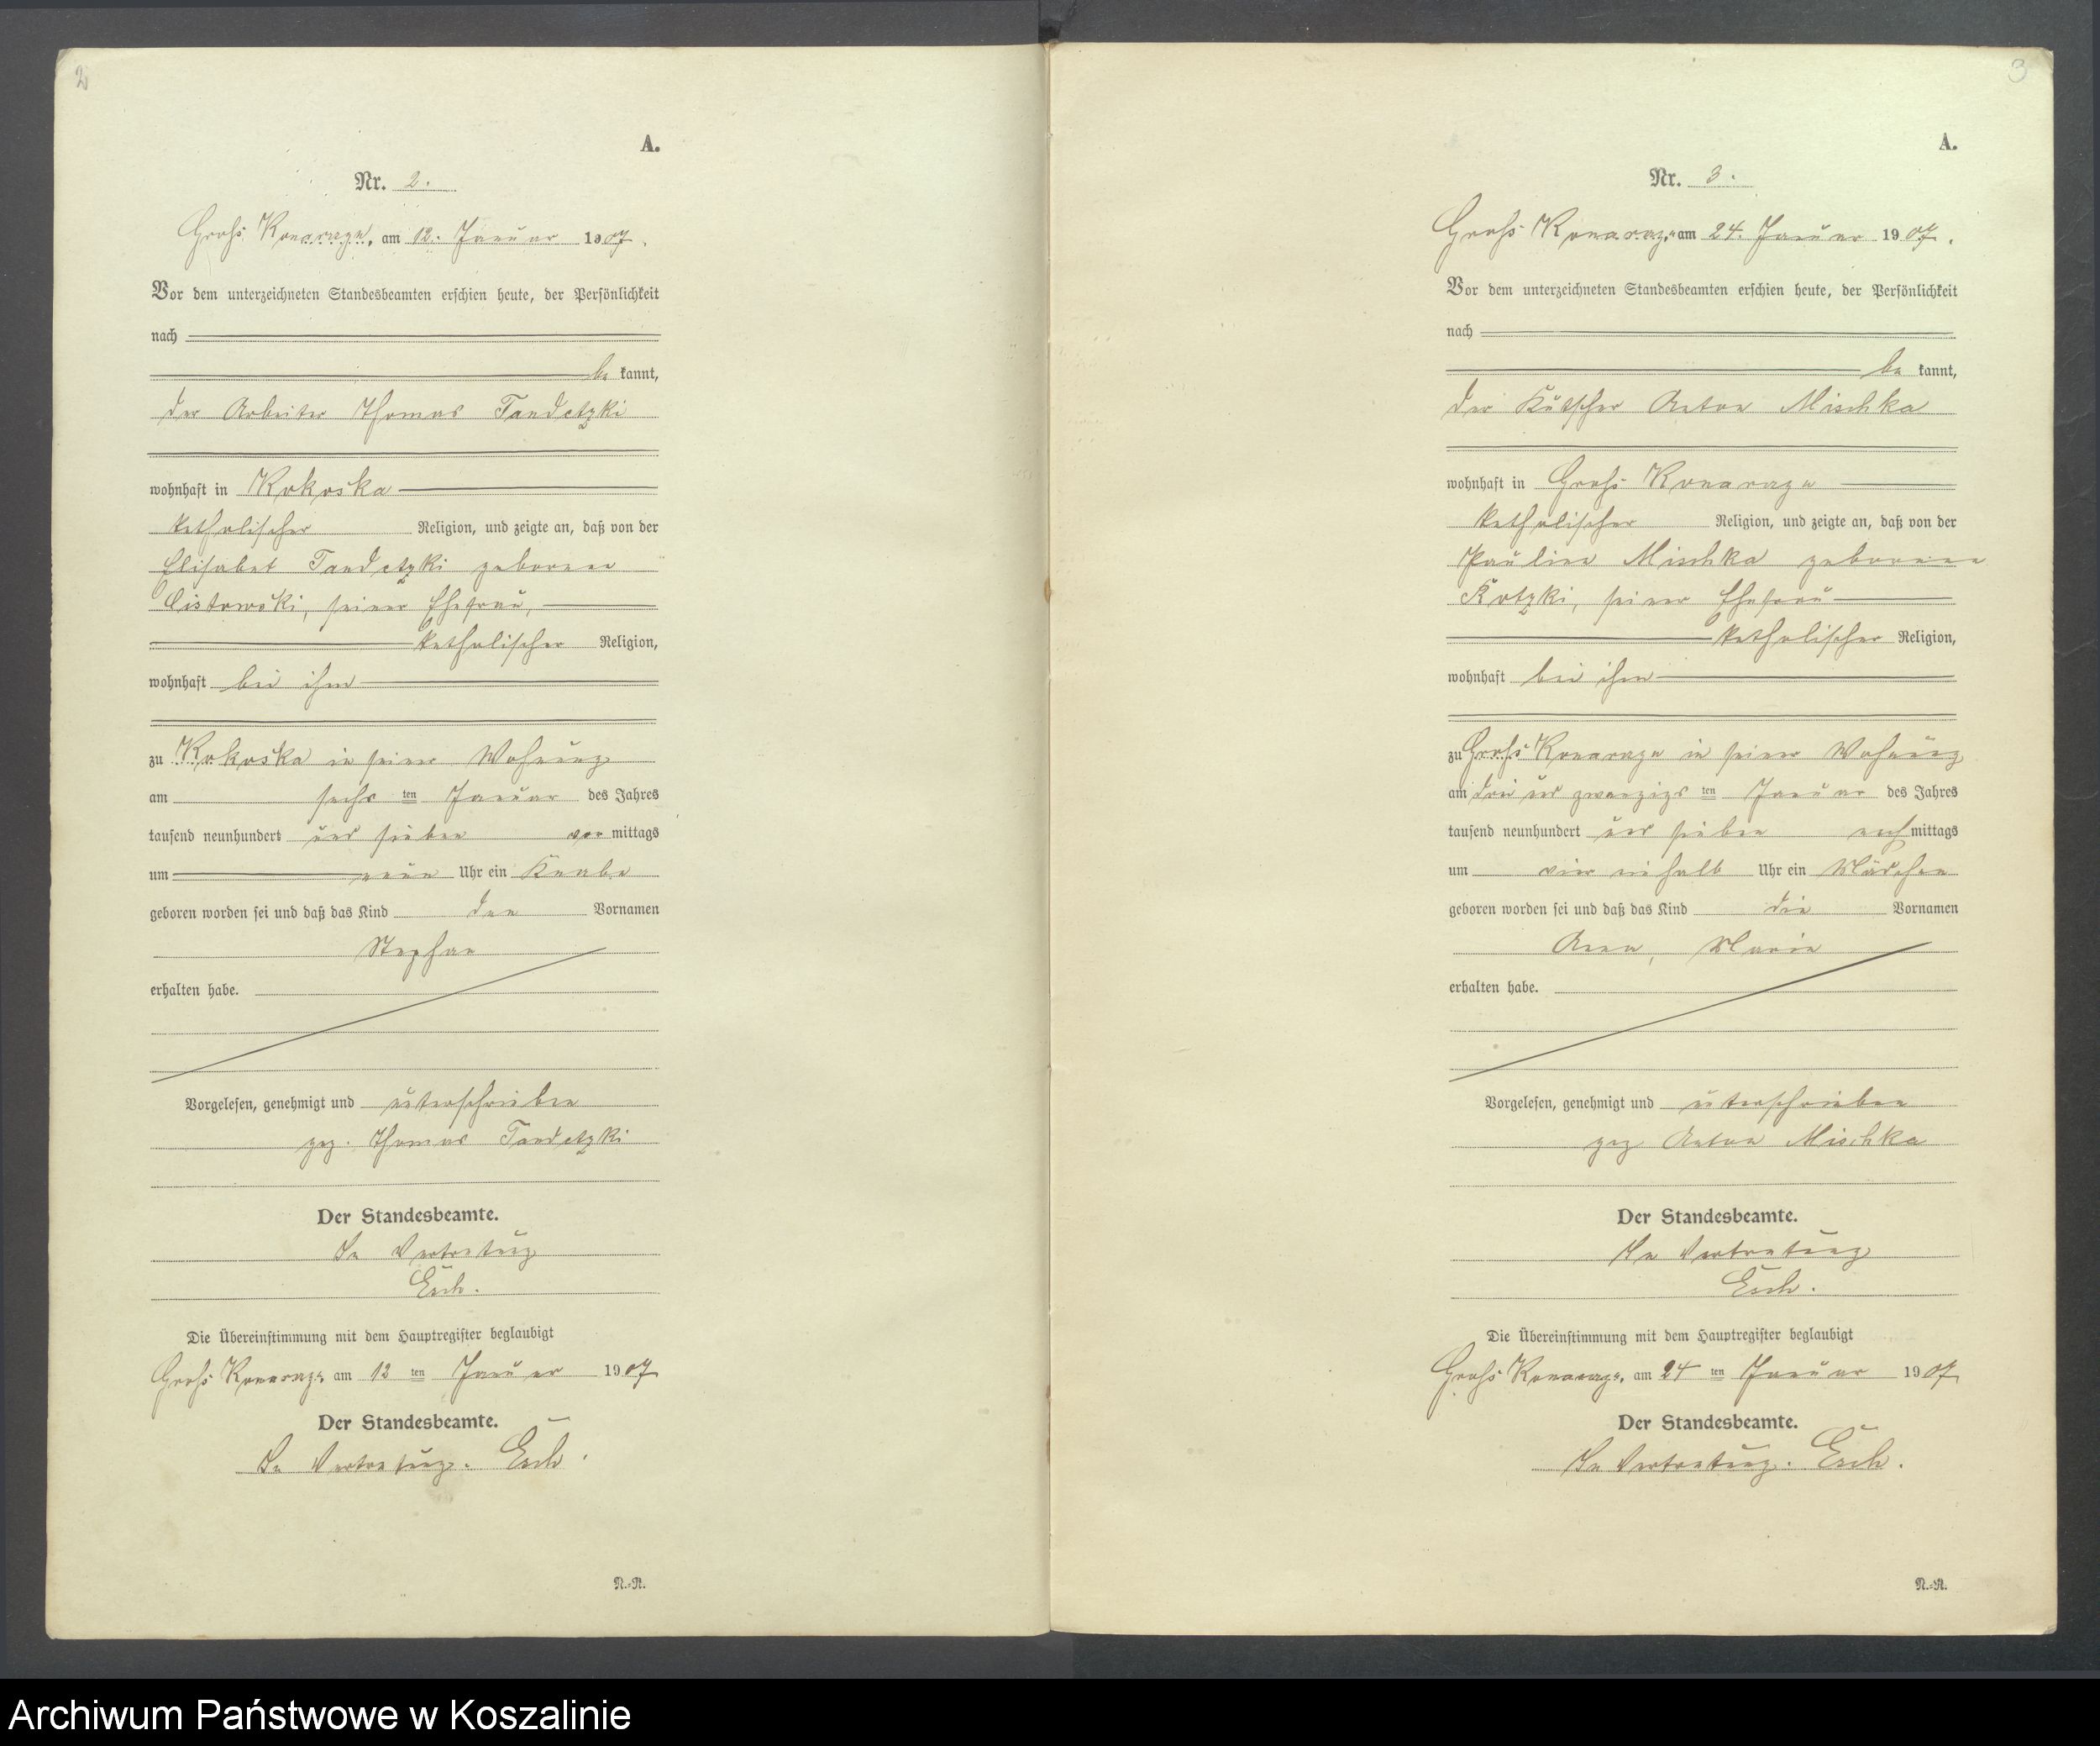 2
A.
Nr. 2.
Groß Konarzyn, am 12. Januar 1907.
Vor dem unterzeichneten Standesbeamten erschien heute, der Persönlichkeit
nach
be kannt,
der Arbeiter Thomas Tandetzki
wohnhaft in Kokoska
katholischer Religion, und zeigte an, daß von der
Elisabet Tandetzki geborenen
Cistowski, seiner Ehefrau,
katholischer Religion,
wohnhaft bei ihm
zu Kokoska in seiner Wohnung
am sechs ten Januar des Jahres
tausend neunhundert und sieben vor mittags
um neun Uhr ein Knabe
geboren worden sei und daß das Kind den Vornamen
Stephan
erhalten habe.
Vorgelesen, genehmigt und unterschrieben
gez. Thomas Tandetzki
Der Standesbeamte.
In Vertretung
Esch.
Die Übereinstimmung mit dem Hauptregister beglaubigt
Groß Konarzyn am 12 ten Januar 1907
Der Standesbeamte.
In Vertretung. Esch.
N.-R.
3
A.
Nr. 3.
Groß Konarzyn am 24. Januar 1907.
Vor dem unterzeichneten Standesbeamten erschien heute, der Persönlichkeit
nach
be kannt,
der Kutscher Anton Mischka
wohnhaft in Groß Konarzyn
katholischer Religion, und zeigte an, daß von der
Pauline Mischka geborenen
Kotzki, seiner Ehefrau
katholischer Religion,
wohnhaft bei ihm
zu Groß Konarzyn in seiner Wohnung
am drei und zwanzigs ten Januar des Jahres
tausend neunhundert und sieben nach mittags
um vier einhalb Uhr ein Mädchen
geboren worden sei und daß das Kind die Vornamen
Anna, Marie
erhalten habe.
Vorgelesen, genehmigt und unterschrieben
gez Anton Mischka
Der Standesbeamte.
In Vertretung
Esch.
Die Übereinstimmung mit dem Hauptregister beglaubigt
Groß Konarzyn, am 24 ten Januar 1907
Der Standesbeamte.
In Vertretung. Esch.
N.-R.
Archiwum Państwowe w Koszalinie